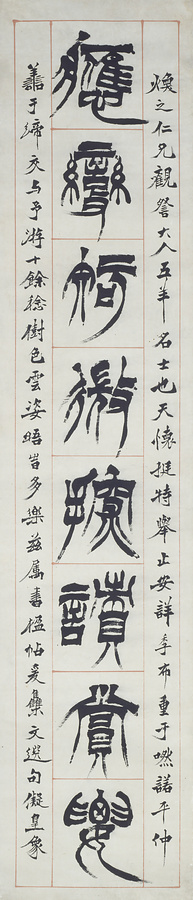 煥之仁兄觀詧大人五羊名士也天懷挺特舉止安詳季布重于嘫諾平仲
應變知微探賾賞要
譱于締交与予游十餘稔樹色雲姿晤旹多樂茲屬書楹帖爰集文選句儗皇象